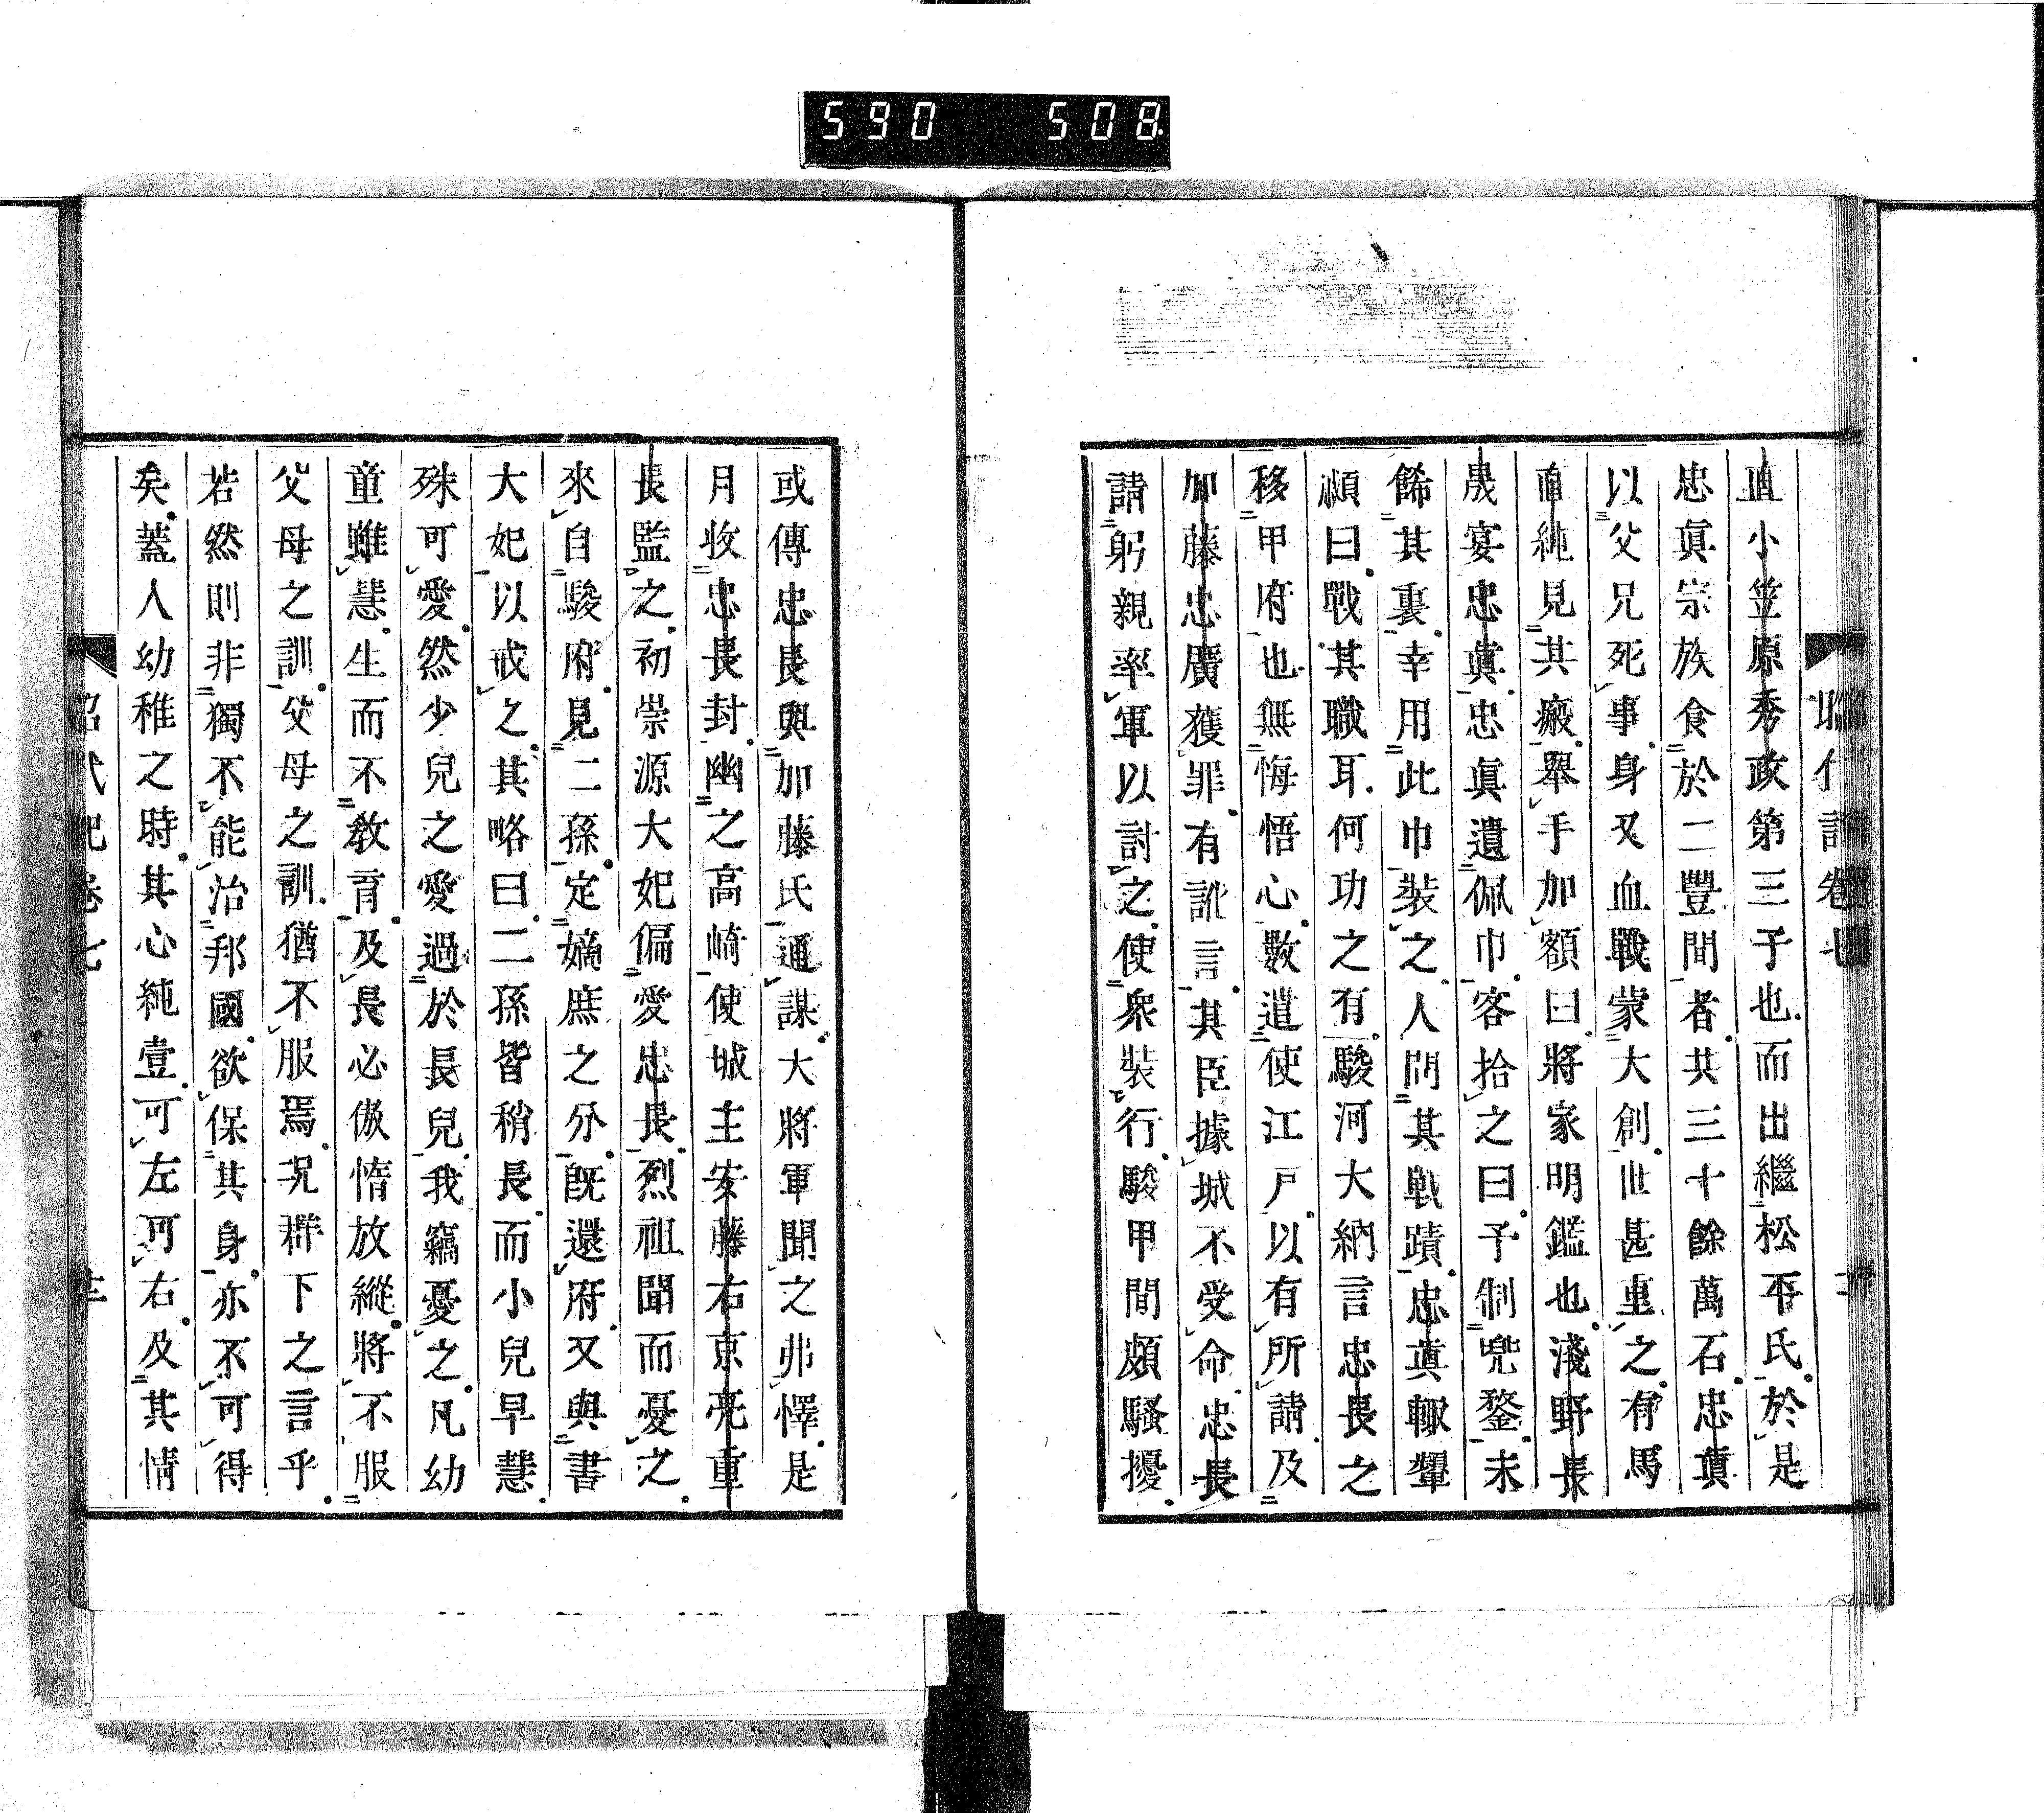 590 508
直小笠原秀政第三子也而出繼松平氏於是
忠真宗族食於二豐間者共三十餘萬石忠真
以父兄死事身又血戰蒙大創世甚重之有馬
直純見其瘢舉手加額曰將家明鑑也淺野長
晟宴忠真忠真遺佩巾客拾之曰予制兜鍪未
餙其裏幸用此巾裝之人問其戰蹟忠真輙顰
頞曰戰其職耳何功之有駿河大納言忠長之
移甲府也無悔悟心數遣使江戶以有所請及
加藤忠廣獲罪有訛言其臣據城不受命忠長
請躬親率軍以討之使衆裝行駿甲間頗騷擾
或傳忠長與加藤氏通謀大將軍聞之弗懌是
月收忠長封幽之高崎使城主安藤右京亮重
長監之初崇源大妃偏愛忠長烈祖聞而憂之
來自駿府見二孫定嫡庶之分既還府又與書
大妃以戒之其略曰二孫皆稍長而小兒早慧
殊可愛然少兒之愛過於長兒我竊憂之凡幼
童雖慧生而不教育及長必傲惰放縱將不服
父母之訓父母之訓猶不服焉況群下之言乎
若然則非獨不能治邦國欲保其身亦不可得
矣蓋人幼稚之時其心純壹可左可右及其情